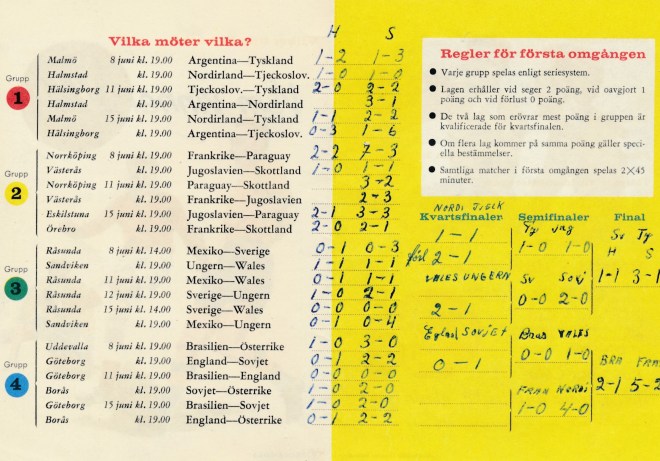 Vilka möter vilka?
H S
Grupp 1
Malmö 8 juni kl. 19.00 Argentina—Tyskland 1-2 1-3
Halmstad kl. 19.00 Nordirland—Tjeckoslov. 1-0 1-0
Hälsingborg 11 juni kl. 19.00 Tjeckoslov.—Tyskland 2-0 2-2
Halmstad kl. 19.00 Argentina—Nordirland 3-1
Malmö 15 juni kl. 19.00 Nordirland—Tyskland 1-1 2-2
Hälsingborg kl. 19.00 Argentina—Tjeckoslov. 0-3 1-6
Grupp 2
Norrköping 8 juni kl. 19.00 Frankrike—Paraguay 2-2 7-3
Västerås kl. 19.00 Jugoslavien—Skottland 1-0 1-1
Norrköping 11 juni kl. 19.00 Paraguay—Skottland 3-2
Västerås kl. 19.00 Frankrike—Jugoslavien 2-3
Eskilstuna 15 juni kl. 19.00 Jugoslavien—Paraguay 2-1 3-3
Örebro kl. 19.00 Frankrike—Skottland 2-0 2-1
Grupp 3
Råsunda 8 juni kl. 14.00 Mexiko—Sverige 0-1 0-3
Sandviken kl. 19.00 Ungern—Wales 1-1 1-1
Råsunda 11 juni kl. 19.00 Mexiko—Wales 0-1 1-1
Råsunda 12 juni kl. 19.00 Sverige—Ungern 1-0 2-1
Råsunda 15 juni kl. 14.00 Sverige—Wales 0-0 0-0
Sandviken kl. 19.00 Mexiko—Ungern 0-1 0-4
Grupp 4
Uddevalla 8 juni kl. 19.00 Brasilien—Österrike 1-0 3-0
Göteborg kl. 19.00 England—Sovjet 0-1 2-2
Göteborg 11 juni kl. 19.00 Brasilien—England 0-0 0-0
Borås kl. 19.00 Sovjet—Österrike 1-0 2-0
Göteborg 15 juni kl. 19.00 Brasilien—Sovjet 1-0 2-0
Borås kl. 19.00 England—Österrike 0-1 2-2
Regler för första omgången
● Varje grupp spelas enligt seriesystem.
● Lagen erhåller vid seger 2 poäng, vid oavgjort 1
poäng och vid förlust 0 poäng.
● De två lag som erövrar mest poäng i gruppen är
kvalificerade för kvartsfinaler.
● Om flera lag kommer på samma poäng gäller speci-
ella bestämmelser.
● Samtliga matcher i första omgången spelas 2×45
minuter.
Kvartsfinaler
1-1
förl 2-1
WALES UNGERN
2-1
England SOVJET
0-1
Semifinaler
Ty Jug
1-0 1-0
Sv Sovj
0-0 2-0
Bras WALES
0-0 1-0
FRAN NORDI
1-0 4-0
Final
Sv Ty
H S
1-1 3-1
BRA FRA
2-1 5-2